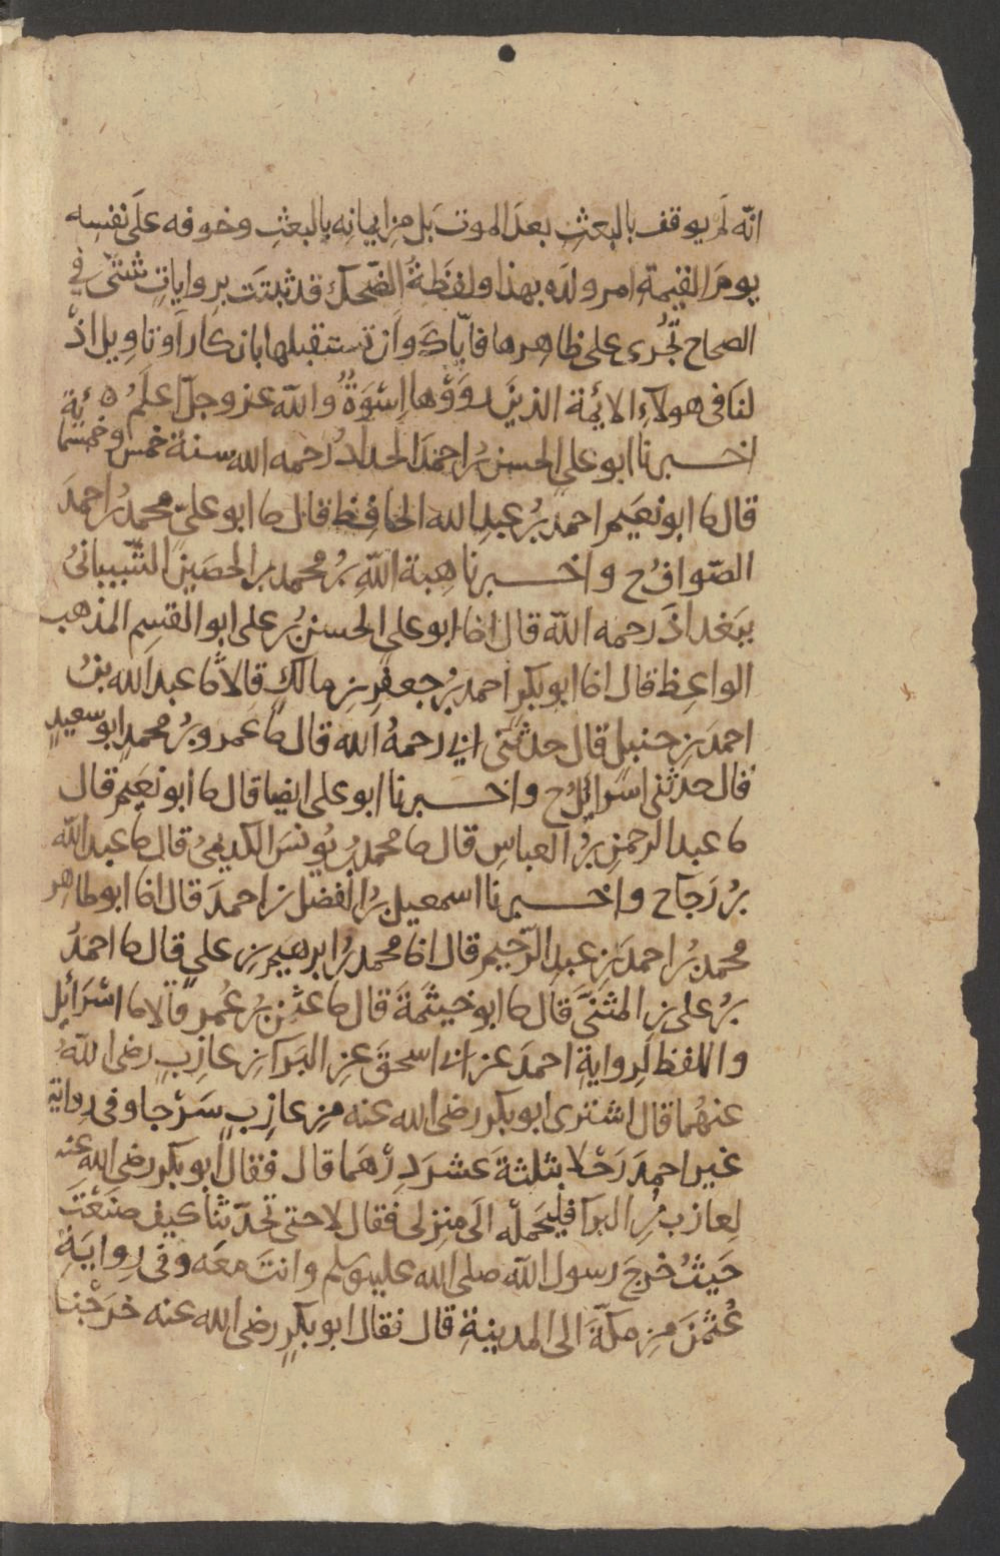 انّه لَم يوقف بالبعثِ بعدَ الموت بَل مِن ايمانِه بالبعثِ وخوفه علَى نفسِه
يومَ القيٰمةِ امر ولدَه بهذا ولفظَةُ الضّحك قد ثبتَت برواياتٍ شتّى في
الصحاح تُجرى على ظاهرها فايّاكَ وان تستقبلها بانكار او تاويل اذْ
لنا فى هولآءِ الايمة الذينَ رَوَوْها اسْوَةٌ والله عز وجلّ اعلَمُ ٥
اخـــبرنا ابو علي الحسن بنُ احمدَ الحدادُ رحمه الله سنة خمس وخمسمائة
قال ثنا ابو نعَيم احمد بنُ عبدِ الله الحافِظ قال ثنا ابو عليّ محمد بنُ احمدَ
الصّوافُ ح واخـــبرنا هبة اللهِ بنُ محمد بن الحصَين الشيبانىُ
ببَغداذَ رحمه الله قال انا ابو علي الحسن بنُ على ابو القسِم المذهب
الواعِظ قال انا ابو بكرٍ احمد بنُ جعفرِ بنِ مالكٍ قالا ثنا عبد الله بنُ
احمدَ بنِ حنبلٍ قال حدثنى ابي رحمهُ الله قال ثنا عمرو بنُ محمدٍ ابو سعيدٍ
قال حدثنى اسرائيلُ ح واخـــبرنا ابو على ايضا قال ثنا ابو نعَيم قال
ثنا عبد الرحمنِ بنُ العباسِ قال ثنا محمد بنُ يونسَ الكديمىُ قال ثنا عبد الله
بنُ رَجآح واخـــبرنا اسمعيل بنُ الفضل بن احمدَ قال انا ابو طاهر
محمد بنُ احمدَ بنِ عبدِ الرّحيم قال انا محمد بنُ ابرهيم بنِ عليٍ قال ثنا احمدُ
بنُ على بنِ المثنّى قال ثنا ابو خيثَمةَ قال ثنا عثمٰن بنُ عُمرَ قالا ثنا اسْرَائيل
واللفظ لِروايةِ احمدَ عن ابي اسحقَ عنِ البَرآ بنِ عازِبٍ رضى اللهُ
عنهُما قال اشترى ابو بكر رضى الله عنه مِن عازِبٍ سَرْجا وفى روايَة
غيرِ احمدَ رَحْلا بثلثةَ عشرَ دِرْهَما قال فقال ابو بكر رضى الله عنه
لِعازب مُرِ البرآ فليَحمِلْه الَى منزلى فقال لا حتى تحَدّثنا كيف صنَعْتَ
حَيثُ خرجَ رسول الله صلى الله عليه وسلم وانتَ معَه وفى رِوايَةِ
عُثمٰنَ مِن مكّةَ الى المدينةِ قال فقال ابو بكرٍ رضى الله عنه خرَجْنا